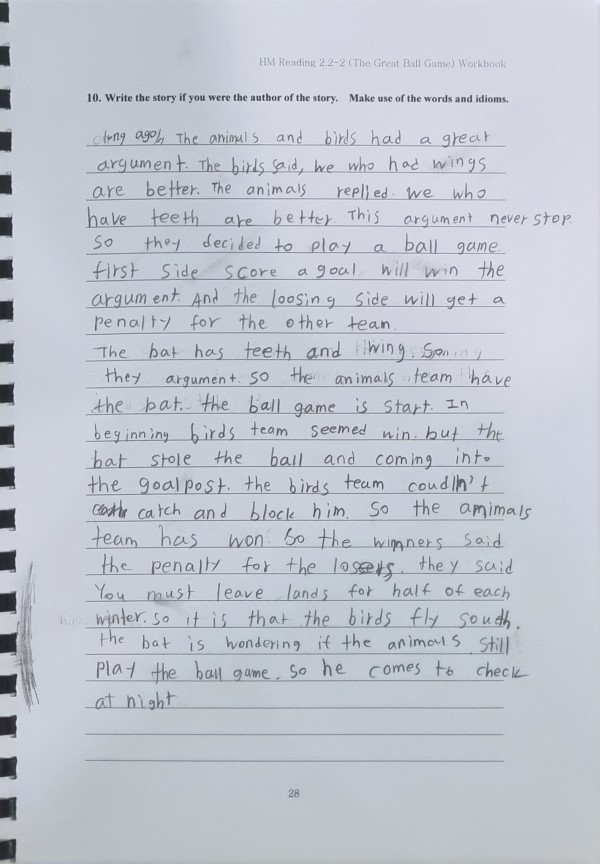 HM Reading 2.2-2 (The Great Ball Game) Workbook
10. Write the story if you were the author of the story. Make use of the words and idioms.
long ago, The animals and birds had a great
argument. The birds said, we who had wings
are better. The animals replied. we who
have teeth are better. This argument never stop.
so they decided to play a ball game.
first side score a goal will win the
argument. And the loosing side will get a
penalty for the other team.
The bat has teeth and wing. So
they argument. so the animals team have
the bat. the ball game is start. In
beginning birds team seemed win. but the
bat stole the ball and coming into
the goalpost. the birds team coudln't
catch and block him. so the amimals
team has won. So the winners said
the penalty for the losers. they said
You must leave lands for half of each
winter. so it is that the birds fly south.
the bat is wondering if the animals still
play the ball game. so he comes to check
at night
28